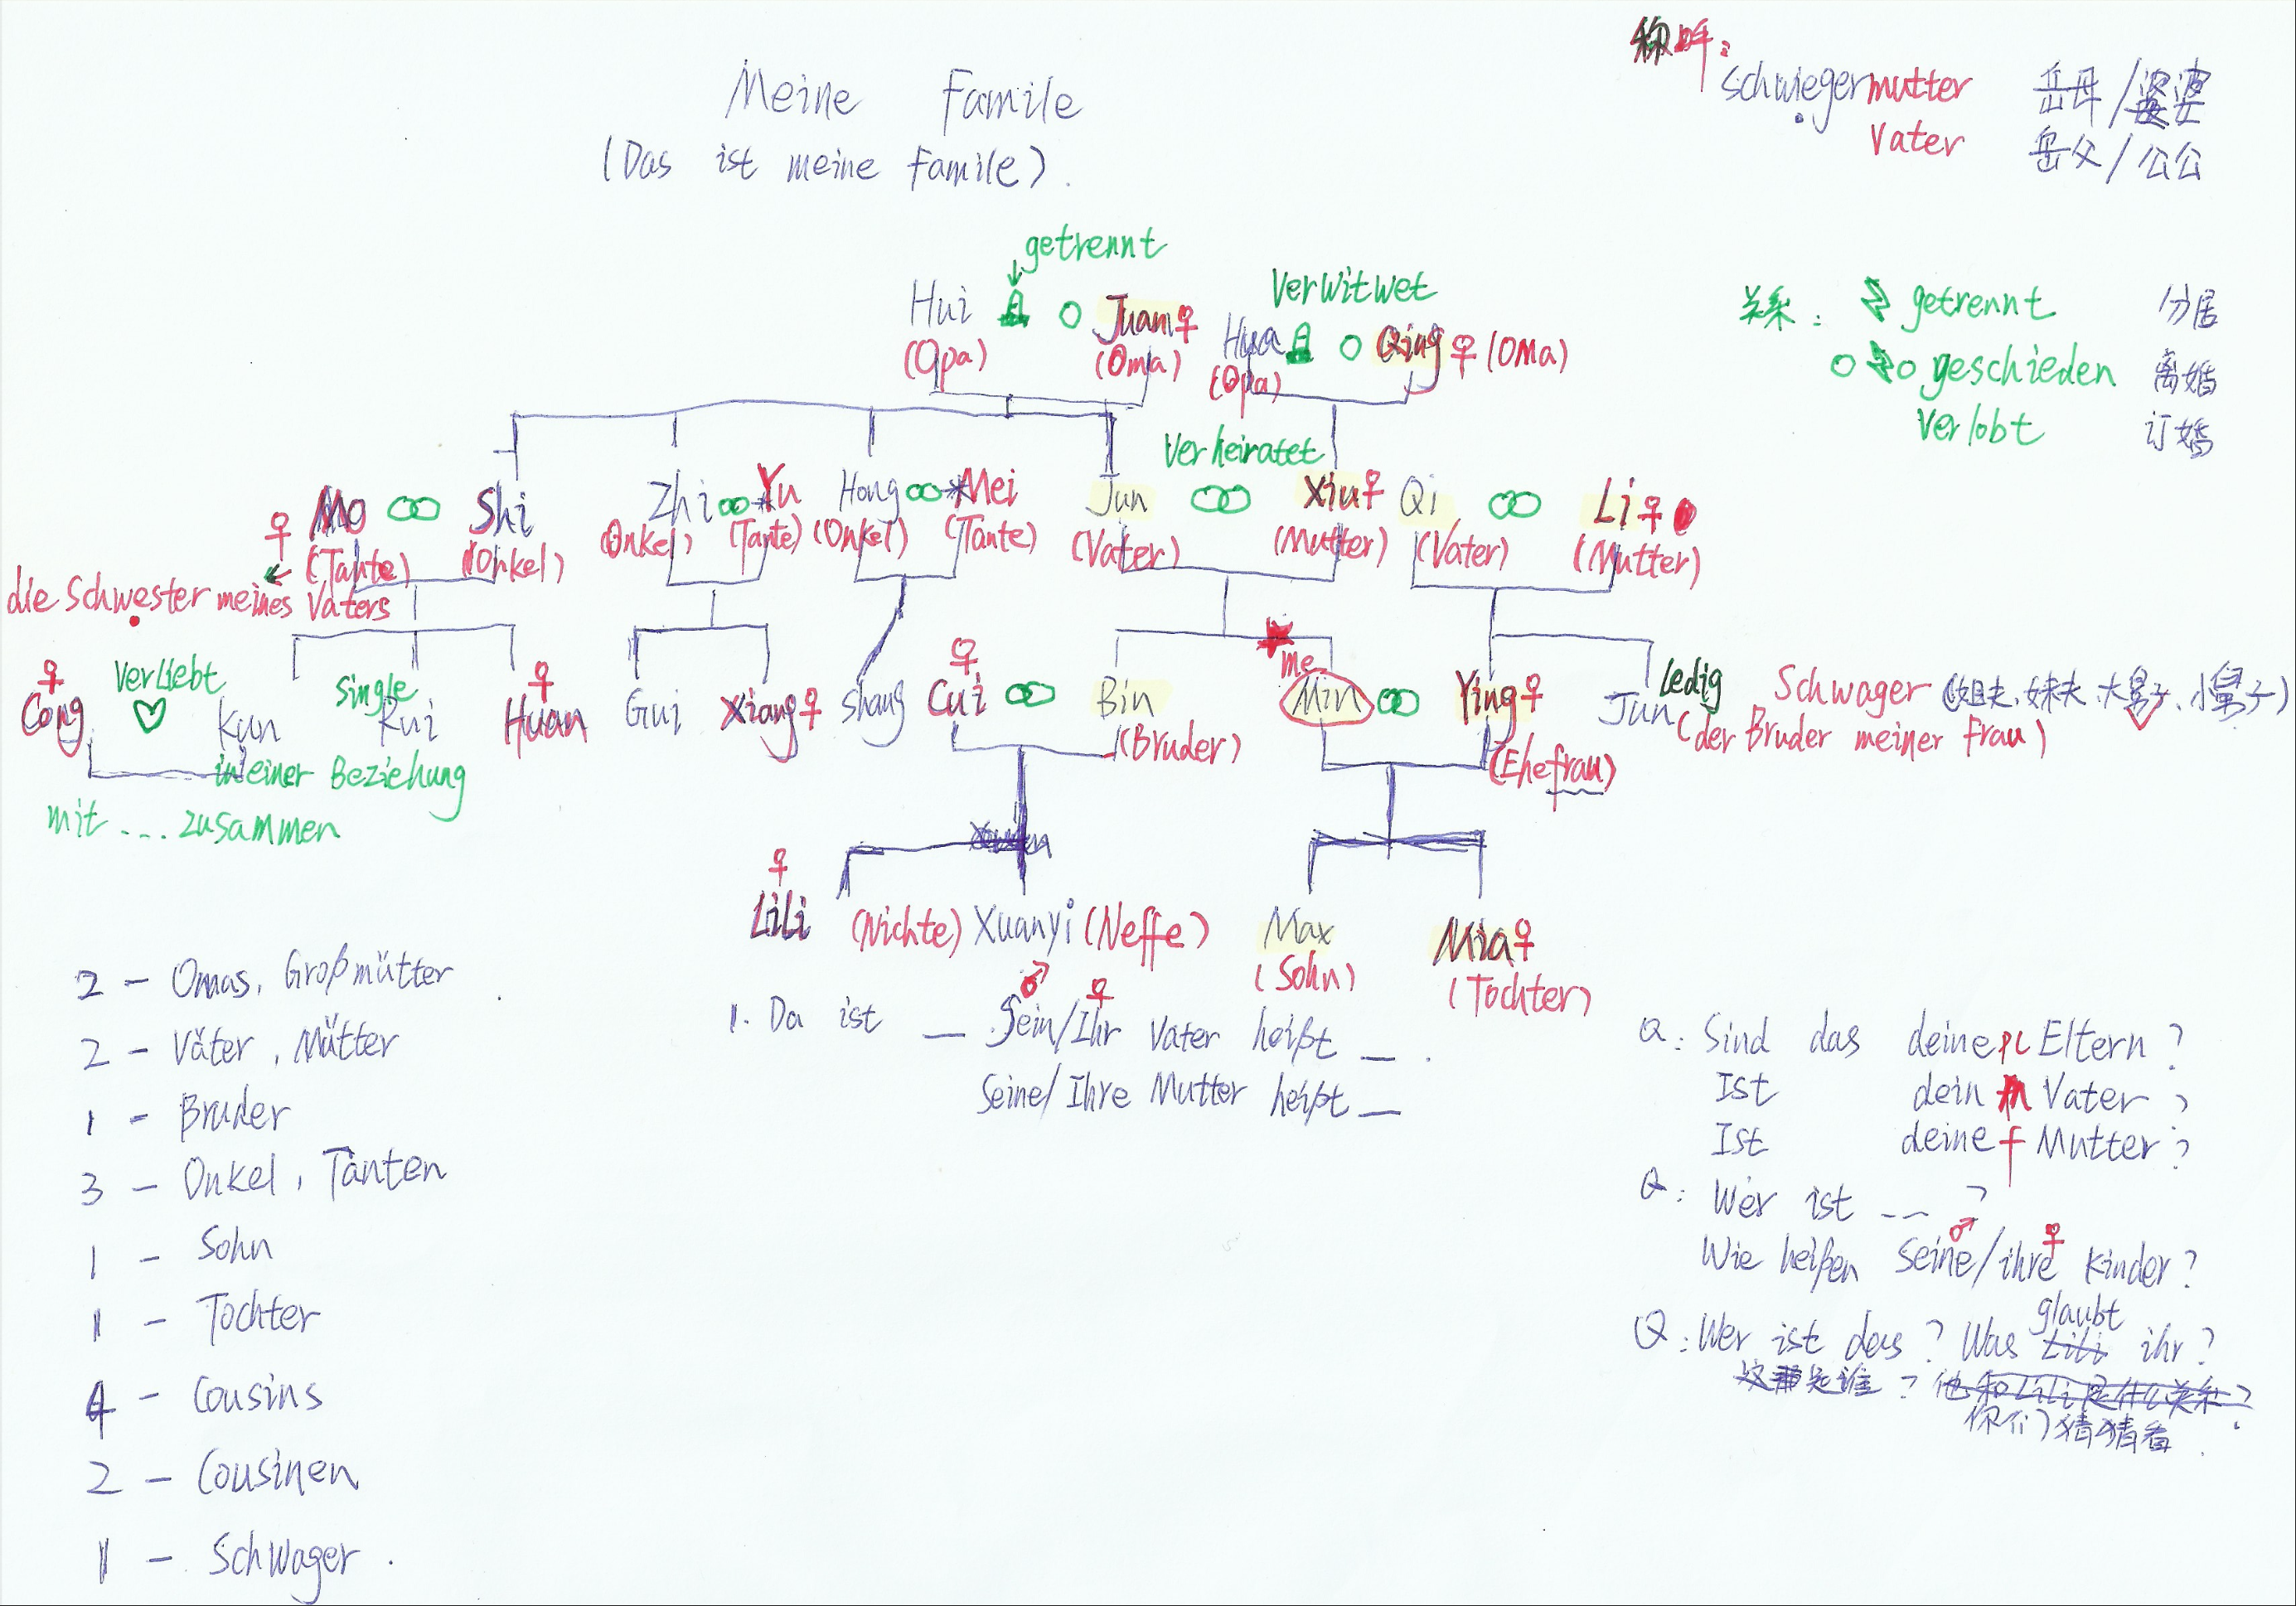 Meine Famile
(Das ist meine Famile).
称呼:
Schwiegermutter 岳母/婆婆
Vater 岳父/公公
getrennt
Verwitwet
Hui Juan♀ Hua Qing♀ (Oma)
(Opa) (Oma) (Opa)
关系: getrennt 分居
geschieden 离婚
Verlobt 订婚
Verheiratet
♀ Mo Shi Zhi Yu Hong Mei Jun Xiu♀ Qi Li♀
(Tante) (Onkel) (Onkel) (Tante) (Onkel) (Tante) (Vater) (Mutter) (Vater) (Mutter)
die Schwester meines Vaters
me
♀ Verliebt Single ♀ ♀ ledig
Cong Kun Rui Huan Gui Xiang♀ Shang Cui Bin Min Ying♀ Jun Schwager (姐夫、妹夫、大舅子、小舅子)
(Bruder) (Ehefrau) (der Bruder meiner Frau)
in einer Beziehung
mit ... zusammen
♀
Lili (Nichte) Xuanyi (Neffe) Max Mia♀
(Sohn) (Tochter)
2 - Omas, Großmütter
2 - Väter, Mütter
1 - Bruder
3 - Onkel, Tanten
1 - Sohn
1 - Tochter
4 - Cousins
2 - Cousinen
1 - Schwager.
♂ ♀
1. Da ist __ Sein/Ihr Vater heißt __.
Seine/Ihre Mutter heißt __
Q: Sind das deine pl Eltern?
Ist dein m Vater?
Ist deine f Mutter?
Q: Wer ist __?
♂ ♀
Wie heißen Seine/ihre Kinder?
glaubt
Q: Wer ist das? Was Lili ihr?
这是谁? 他和Lili是什么关系?
你们猜猜看.